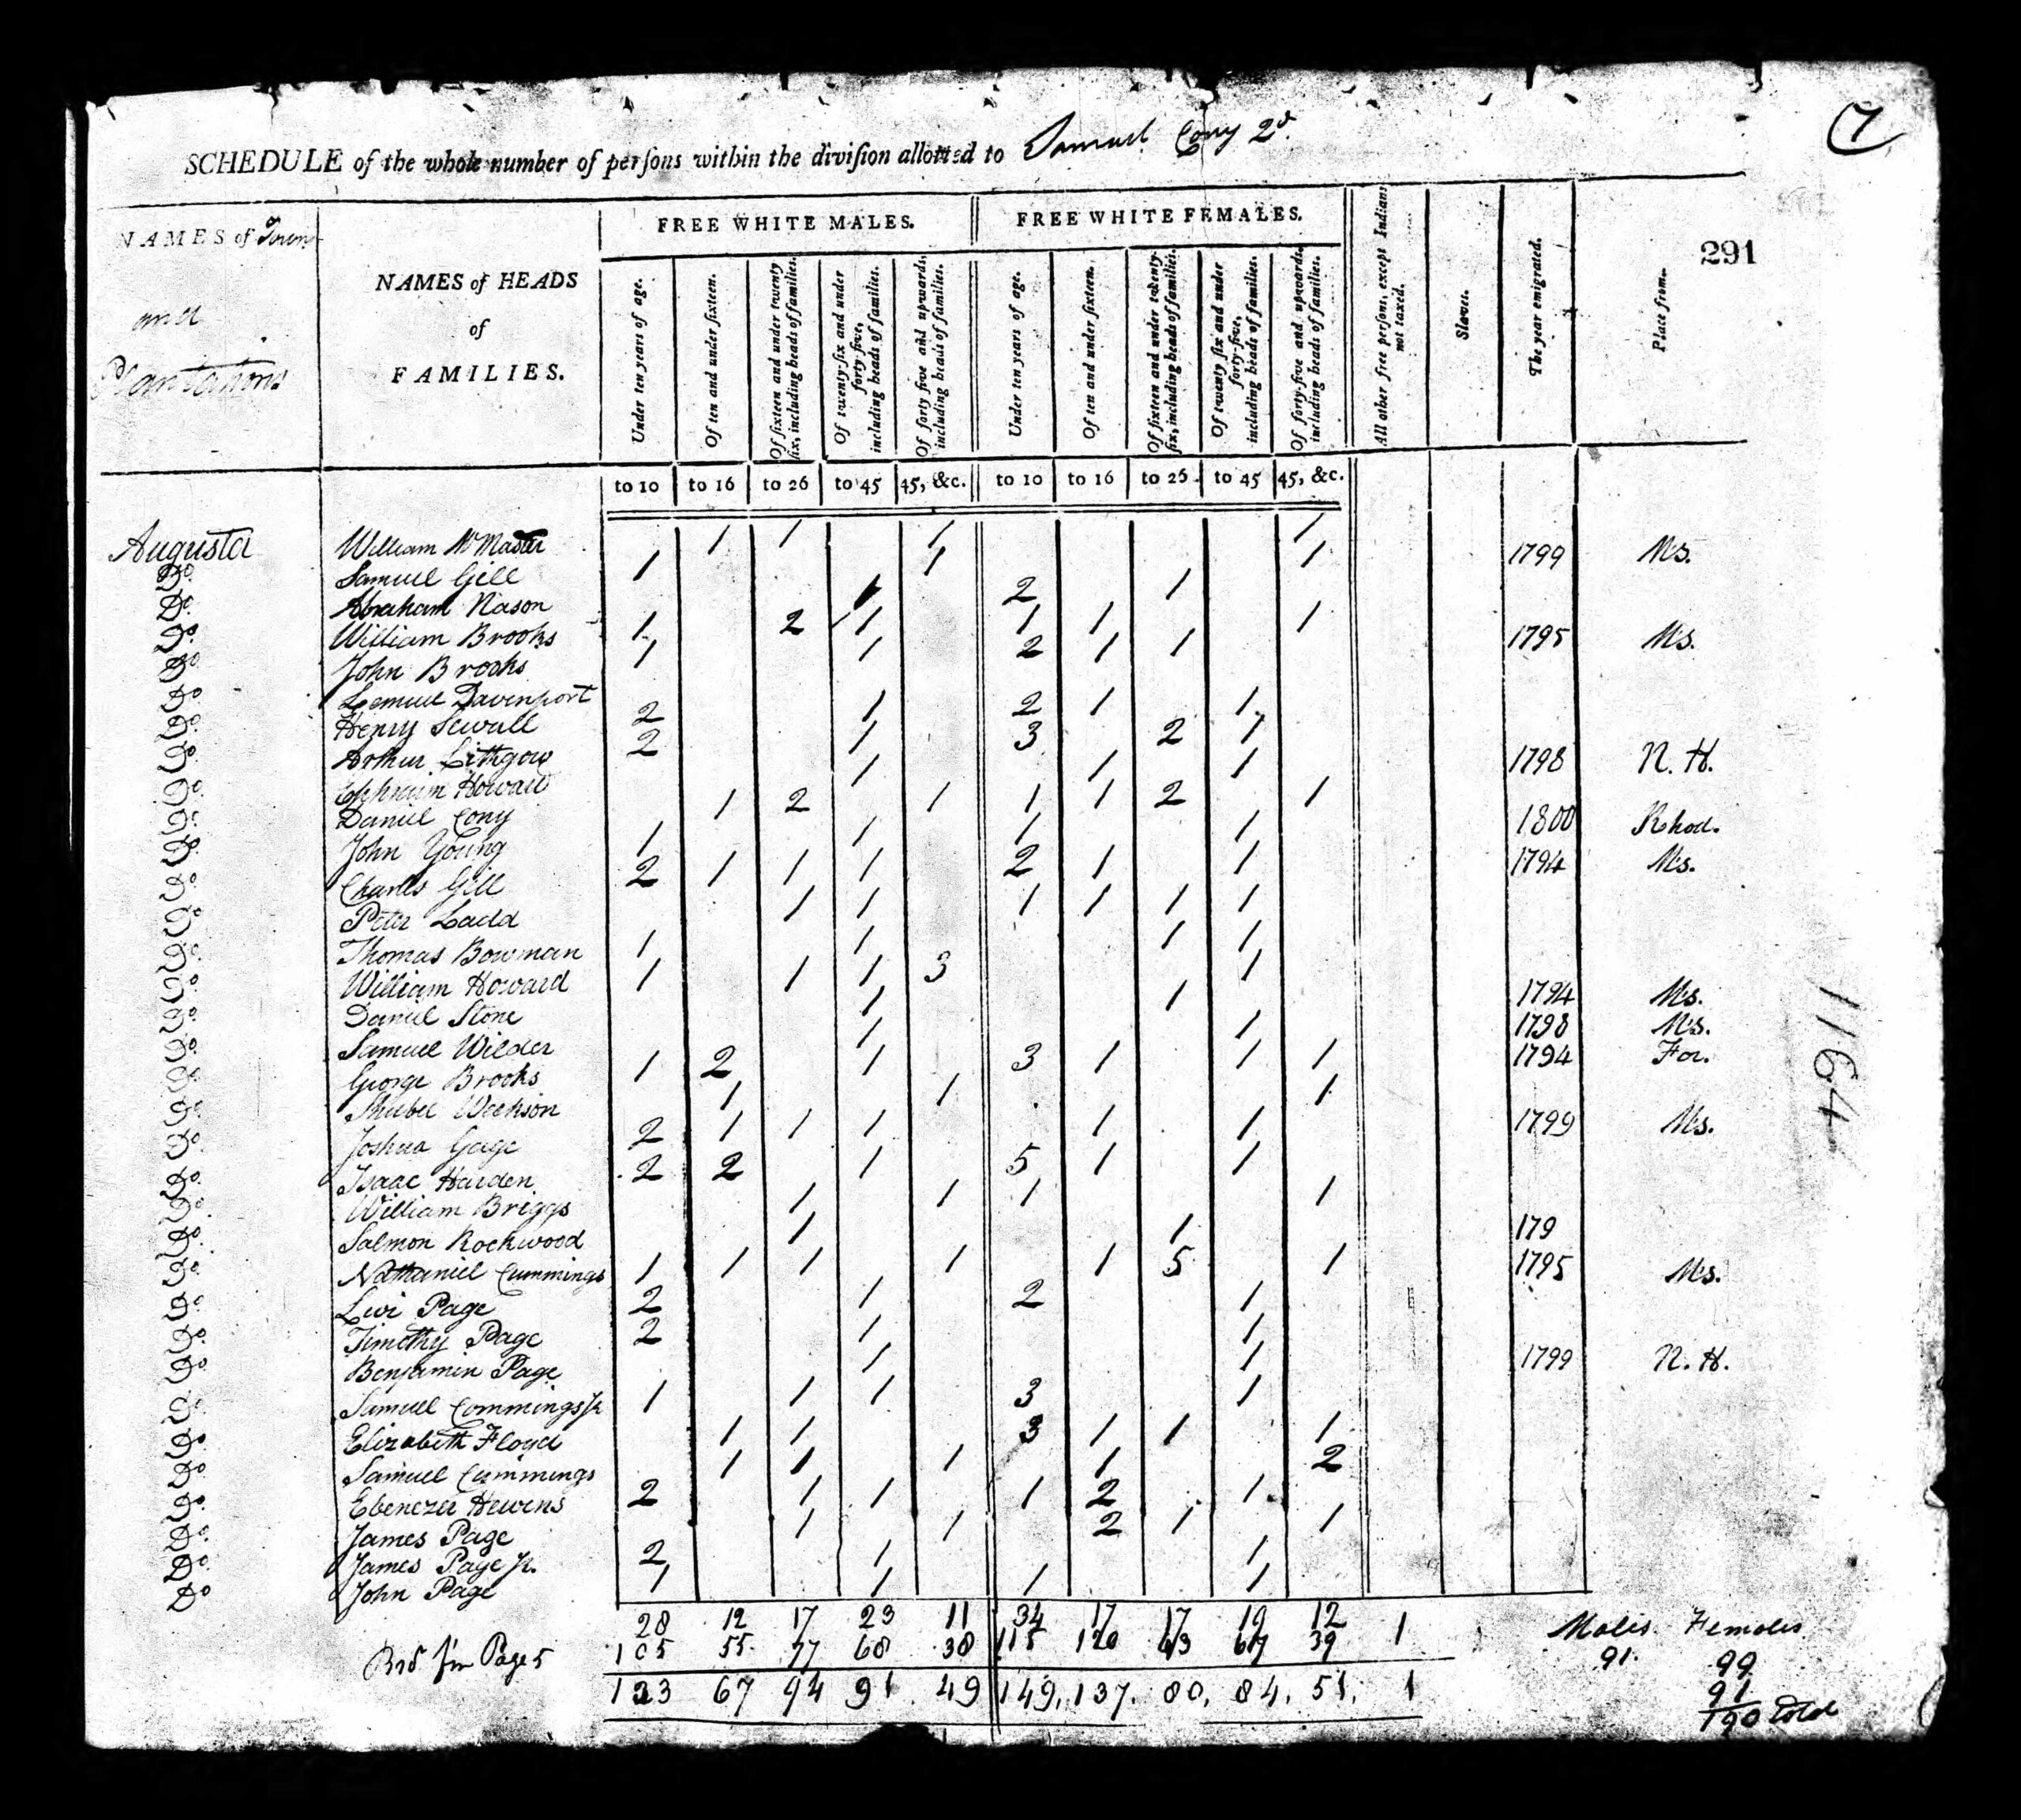 7
SCHEDULE of the whole number of persons within the division allotted to Samuel Cony 2d.
291
NAMES of Towns and Plantations
NAMES of HEADS of FAMILIES.
FREE WHITE MALES. FREE WHITE FEMALES.
Under ten years of age.
Of ten and under sixteen.
Of sixteen and under twenty six, including heads of families.
Of twenty-six and under forty-five, including heads of families.
Of forty five and upwards, including heads of families.
Under ten years of age.
Of ten and under sixteen.
Of sixteen and under twenty-six, including heads of families.
Of twenty six and under forty-five, including heads of families.
Of forty-five and upwards, including heads of families.
All other free persons, except Indians not taxed.
Slaves.
The year emigrated.
Place from.
to 10 to 16 to 26 to 45 45, &c. to 10 to 16 to 26 to 45 45, &c.
Augusta William McMaster 1 1 1 1
Do Samuel Gill 1 1 1 1799 Ms.
Do Abraham Nason 1 2 1
Do William Brooks 1 2 1 1 1 1
Do John Brooks 1 1 2 1 1 1795 Ms.
Do Lemuel Davenport
Do Henry Sewall 2 1 2 1 1
Do Arthur Lithgow 2 1 3 2 1
Do Ephraim Howard 1 1 1 1798 N. H.
Do Daniel Cony 1 2 1 1 1 2 1
Do John Young 1 1 1 1 1800 Rhod.
Do Charles Gill 2 1 1 1 2 1 1 1794 Ms.
Do Peter Ladd 1 1 1 1 1 1
Do Thomas Bowman 1 1 1 1
Do William Howard 1 1 1 3 1
Do Daniel Stone 1 1 1794 Ms.
Do Samuel Wilder 1 1 1798 Ms.
Do George Brooks 1 2 1 3 1 1 1 1794 For.
Do Shubel Weekson 1 1 1
Do Joshua Gage 2 1 1 1 1 1 1799 Ms.
Do Isaac Harden 2 2 1 5 1 1
Do William Briggs 1 1 1 1
Do Salmon Rockwood 1 1 179
Do Nathaniel Cummings 1 1 1 1 1 5 1 1795 Ms.
Do Levi Page 2 1 2 1
Do Timothy Page 2 1 1
Do Benjamin Page 1 1 1799 N. H.
Do Samuel Commings Jr 1 1 1 3 1
Do Elizabeth Floyd 1 1 3 1 1 1
Do Samuel Cummings 1 1 1 1 2
Do Ebenezer Hewins 2 1 1 1 2 1
Do James Page 1 1 2 1 1
Do James Page Jr. 2 1 1
Do John Page 1 1 1 1
28 12 17 23 11 34 17 17 19 12 1
Brd fm Page 5 105 55 77 68 38 115 120 63 67 39
133 67 94 91 49 149. 137. 80. 84. 51. 1
Males Females
91. 99
91
190 total
1164